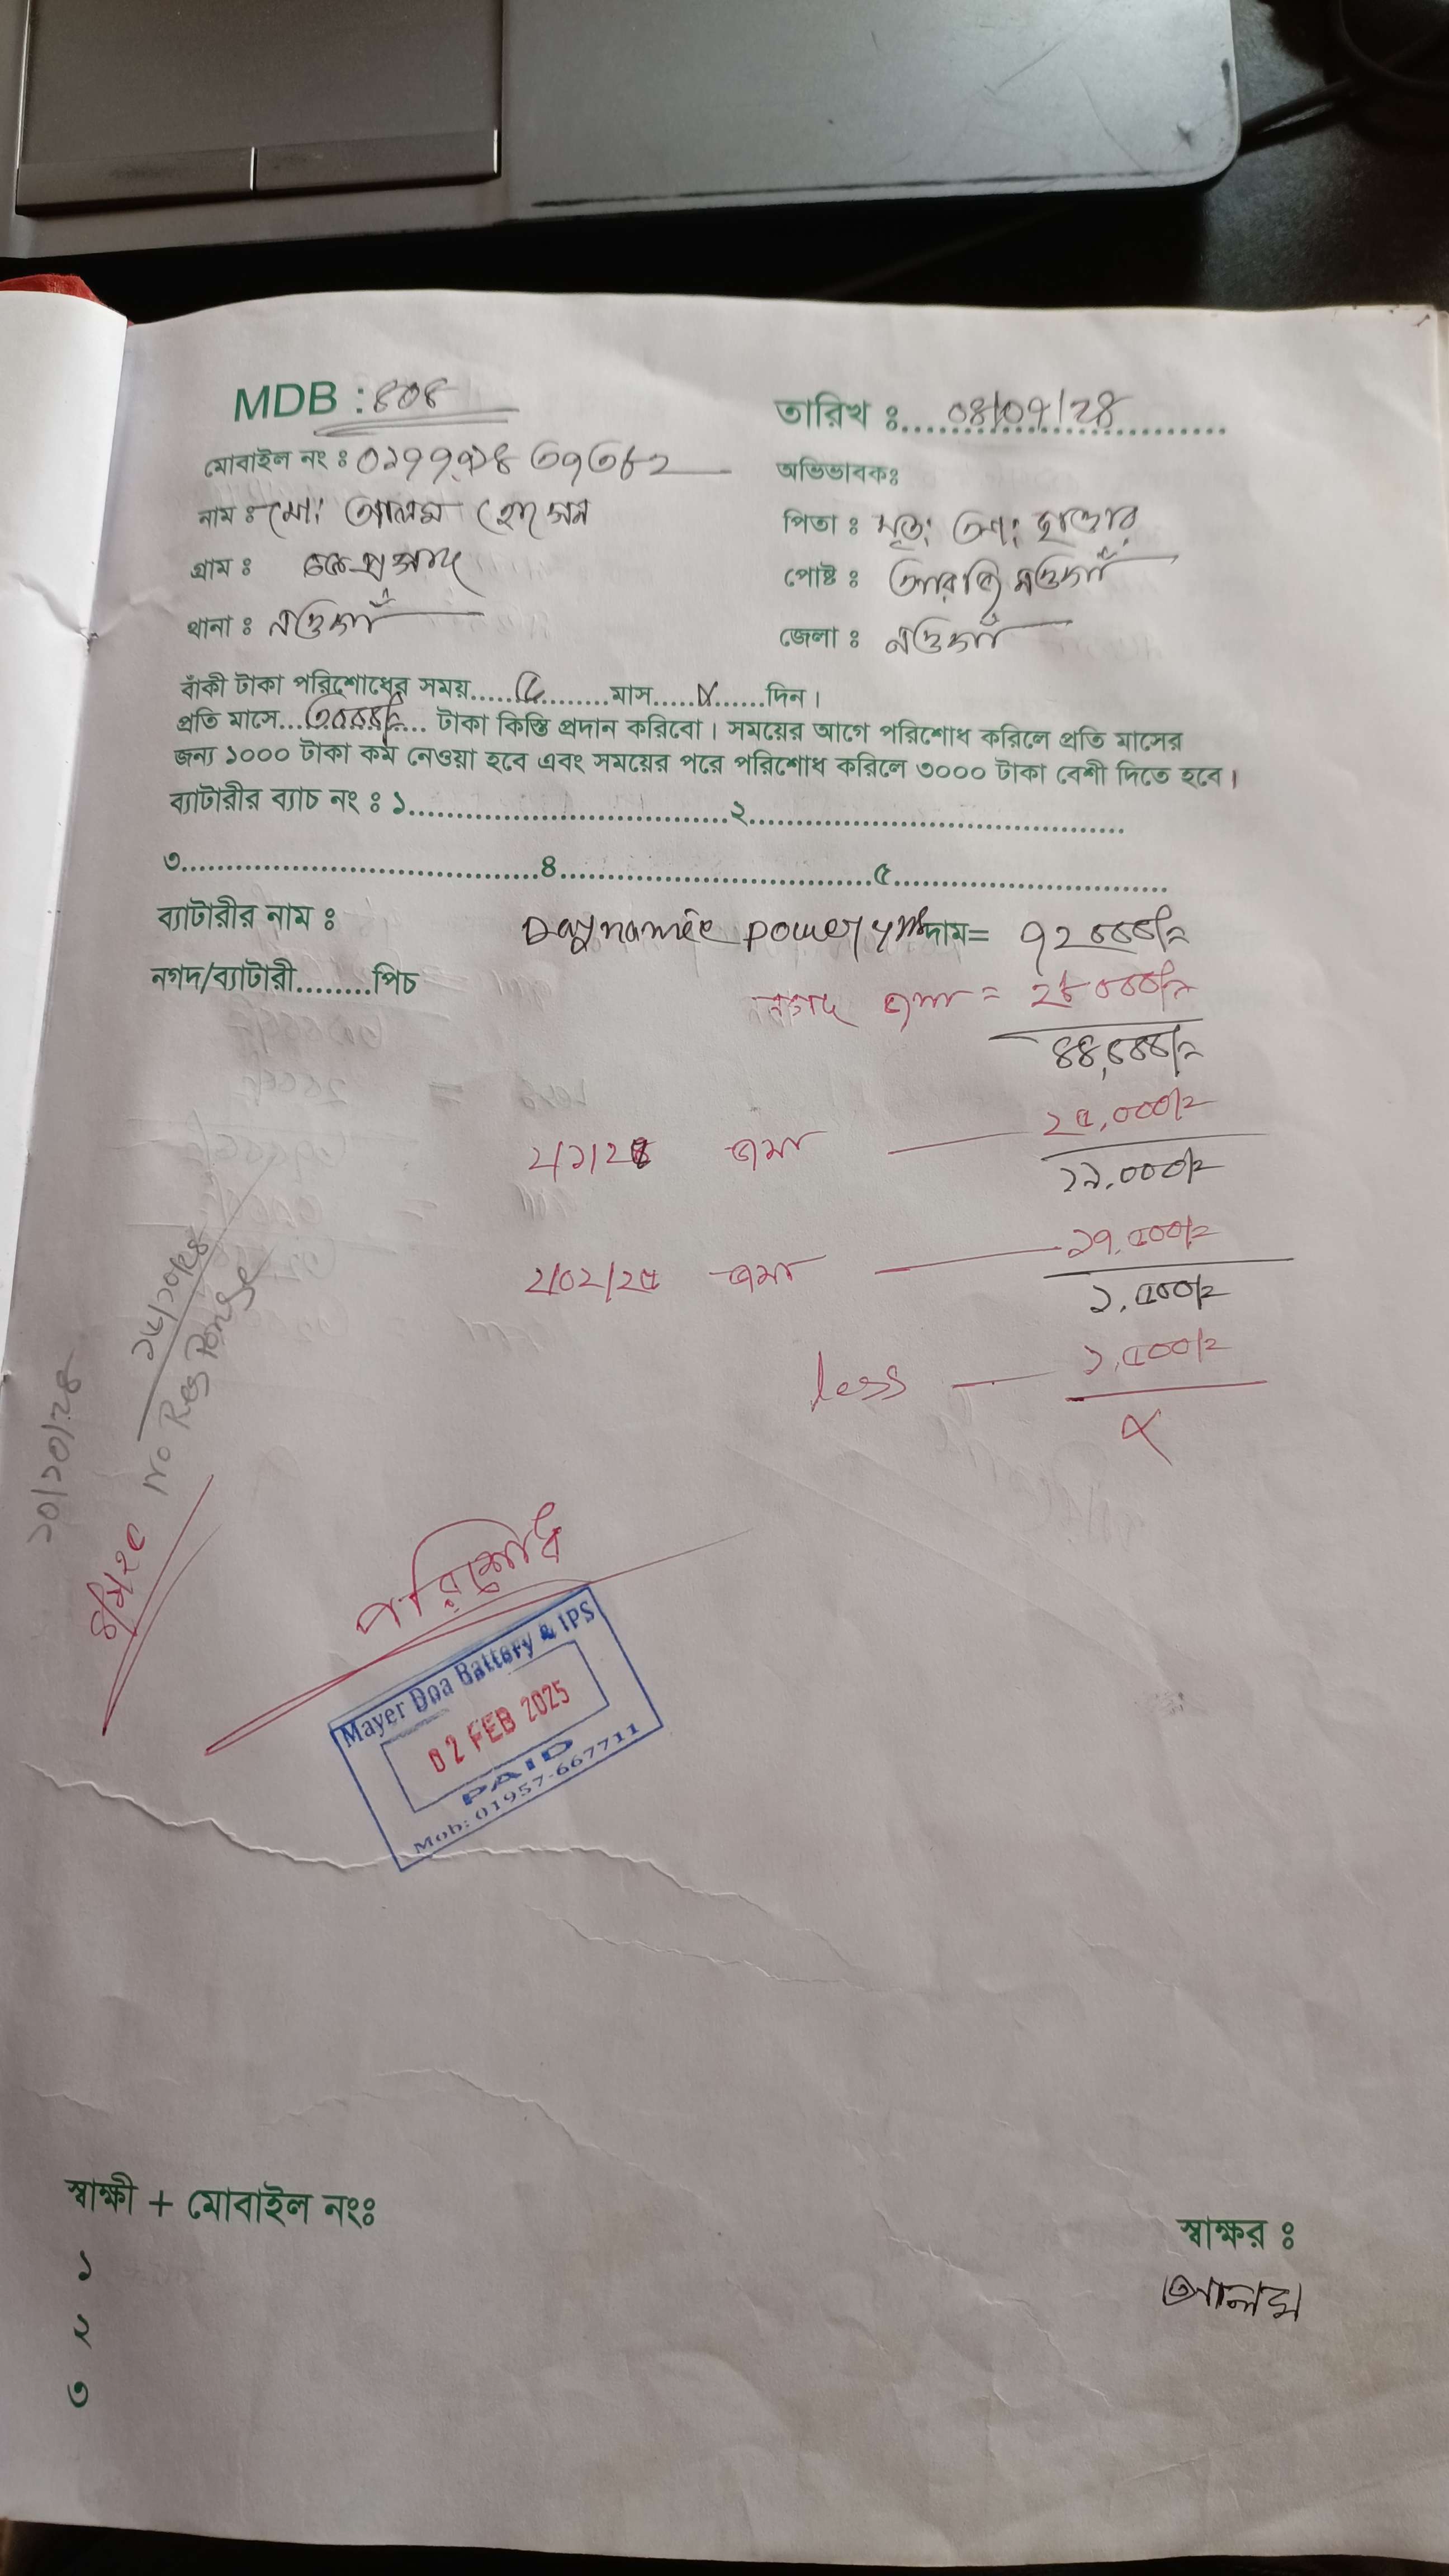 MDB : ৪০৪
তারিখ ঃ ০৪/০৭/২৪
মোবাইল নং ঃ
অভিভাবকঃ
নাম ঃ মো: আলম হোসেন
পিতা ঃ মৃত: আ: ছাত্তার
গ্রাম ঃ
পোষ্ট ঃ আরজি নওগাঁ
থানা ঃ নওগাঁ
জেলা ঃ নওগাঁ
বাঁকী টাকা পরিশোধের সময়..... ৫ .....মাস..... X .....দিন।
প্রতি মাসে... ... টাকা কিস্তি প্রদান করিবো। সময়ের আগে পরিশোধ করিলে প্রতি মাসের
জন্য ১০০০ টাকা কম নেওয়া হবে এবং সময়ের পরে পরিশোধ করিলে ৩০০০ টাকা বেশী দিতে হবে।
ব্যাটারীর ব্যাচ নং ঃ ১..............................২..............................
৩..............................৪..............................৫..............................
ব্যাটারীর নাম ঃ Daynamic power দাম= ৭২০০০/২
নগদ/ব্যাটারী........পিচ
নগদ জমা = ২৮০০০/২
৪৪,০০০/২
২/১/২৫ জমা — ২৫,০০০/২
১৯,০০০/২
২/০২/২৫ জমা — ১৭,৫০০/২
১,৫০০/২
less — ১,৫০০/২
X
২০/১০/২৪
No Response
পরিশোধ
Mayer Doa Battery & IPS
02 FEB 2025
PAID
Mob: 01957-667711
স্বাক্ষী + মোবাইল নংঃ
১
২
৩
স্বাক্ষর ঃ
আলম